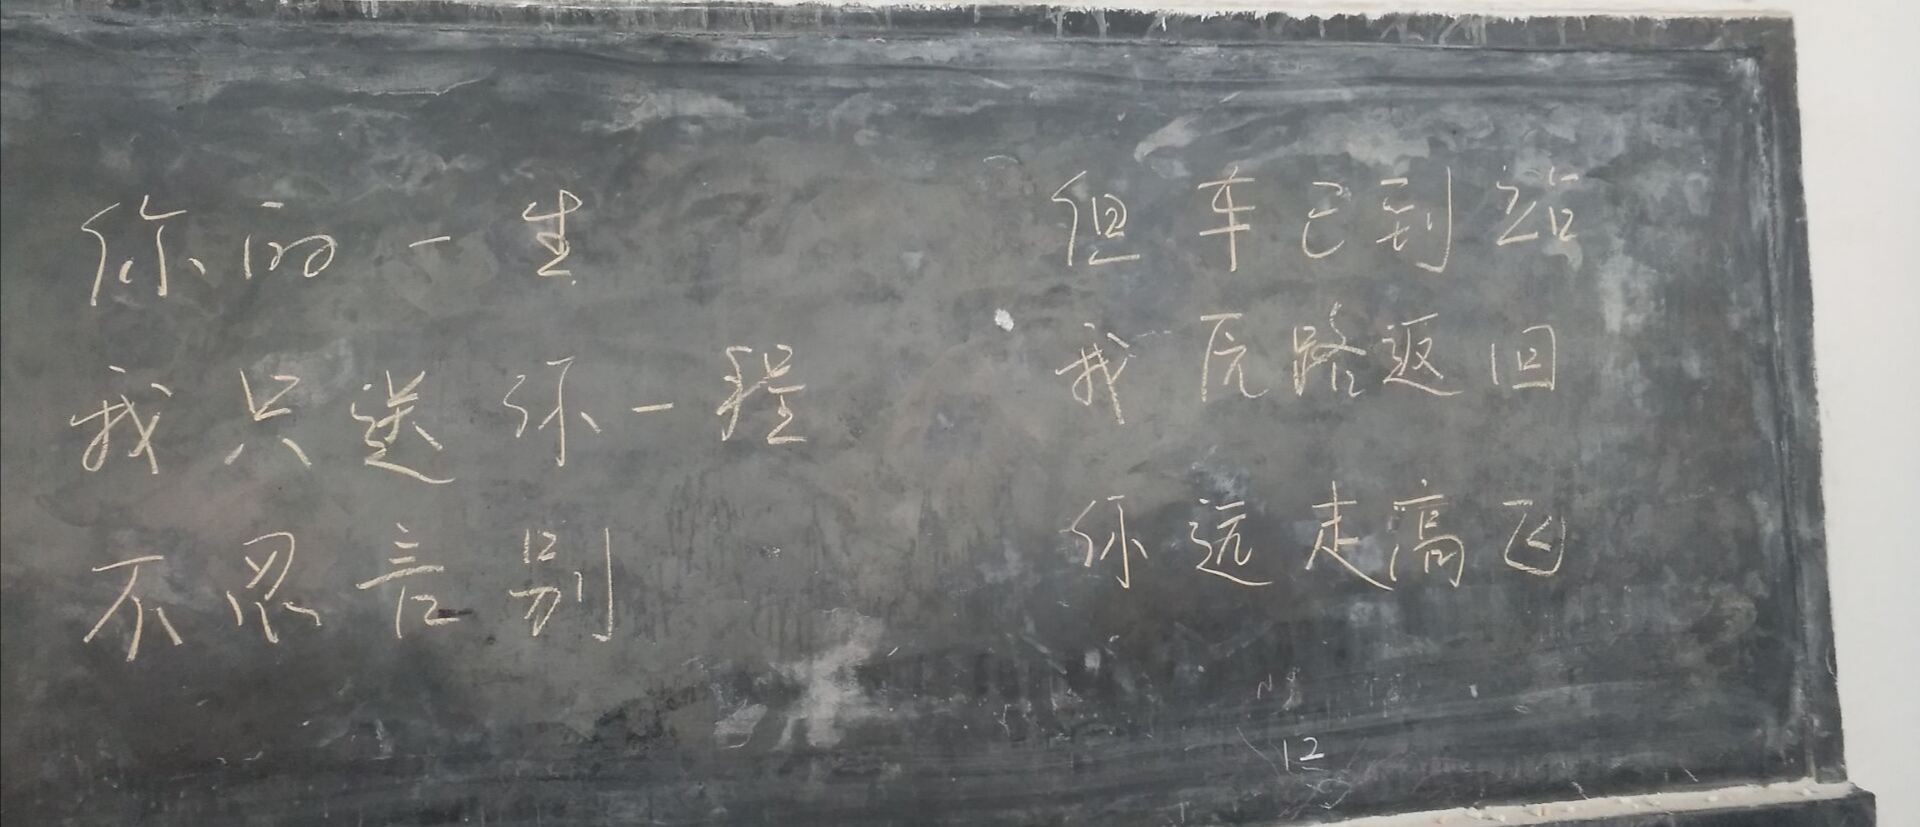 你的一生
我只送你一程
不忍言别
但车已到站
我原路返回
你远走高飞
12